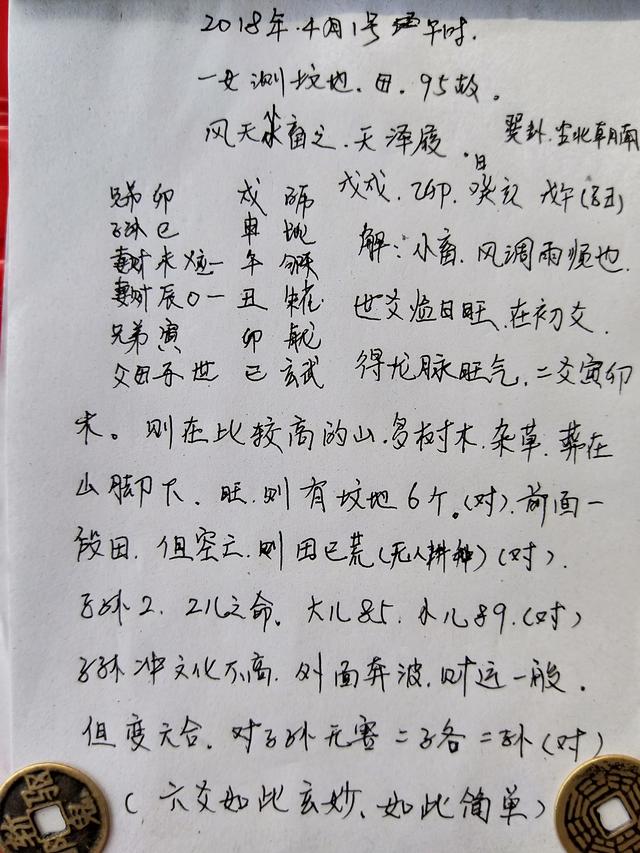 2018年.4月1号 午时.
一女测坟地.田.95故。
风天小畜之.天泽履. 巽卦.坐北朝南
兄弟 卯 戌 戊戌.乙卯.癸亥日 戊午(子丑)
子孙 巳 申 解:小畜.风调雨顺也.
妻财 未 应一 午
妻财 辰 〇一 丑 朱雀 世爻临日旺.在初爻.
兄弟 寅 卯 青龙
父母 子 世 巳 玄武 得龙脉旺气,二爻寅卯
木。则在比较高的山.多树木.杂草.葬在
山脚下.旺.则有坟地6个。(对).前面一
段田.但空亡.则田已荒(无人耕种)(对).
子孙2.2儿之命.大儿85.小儿89.(对)
子孙冲文化不高.外面奔波.财运一般.
但变六合.对子孙无害二子各二孙(对)
(六爻如此玄妙、如此简单)